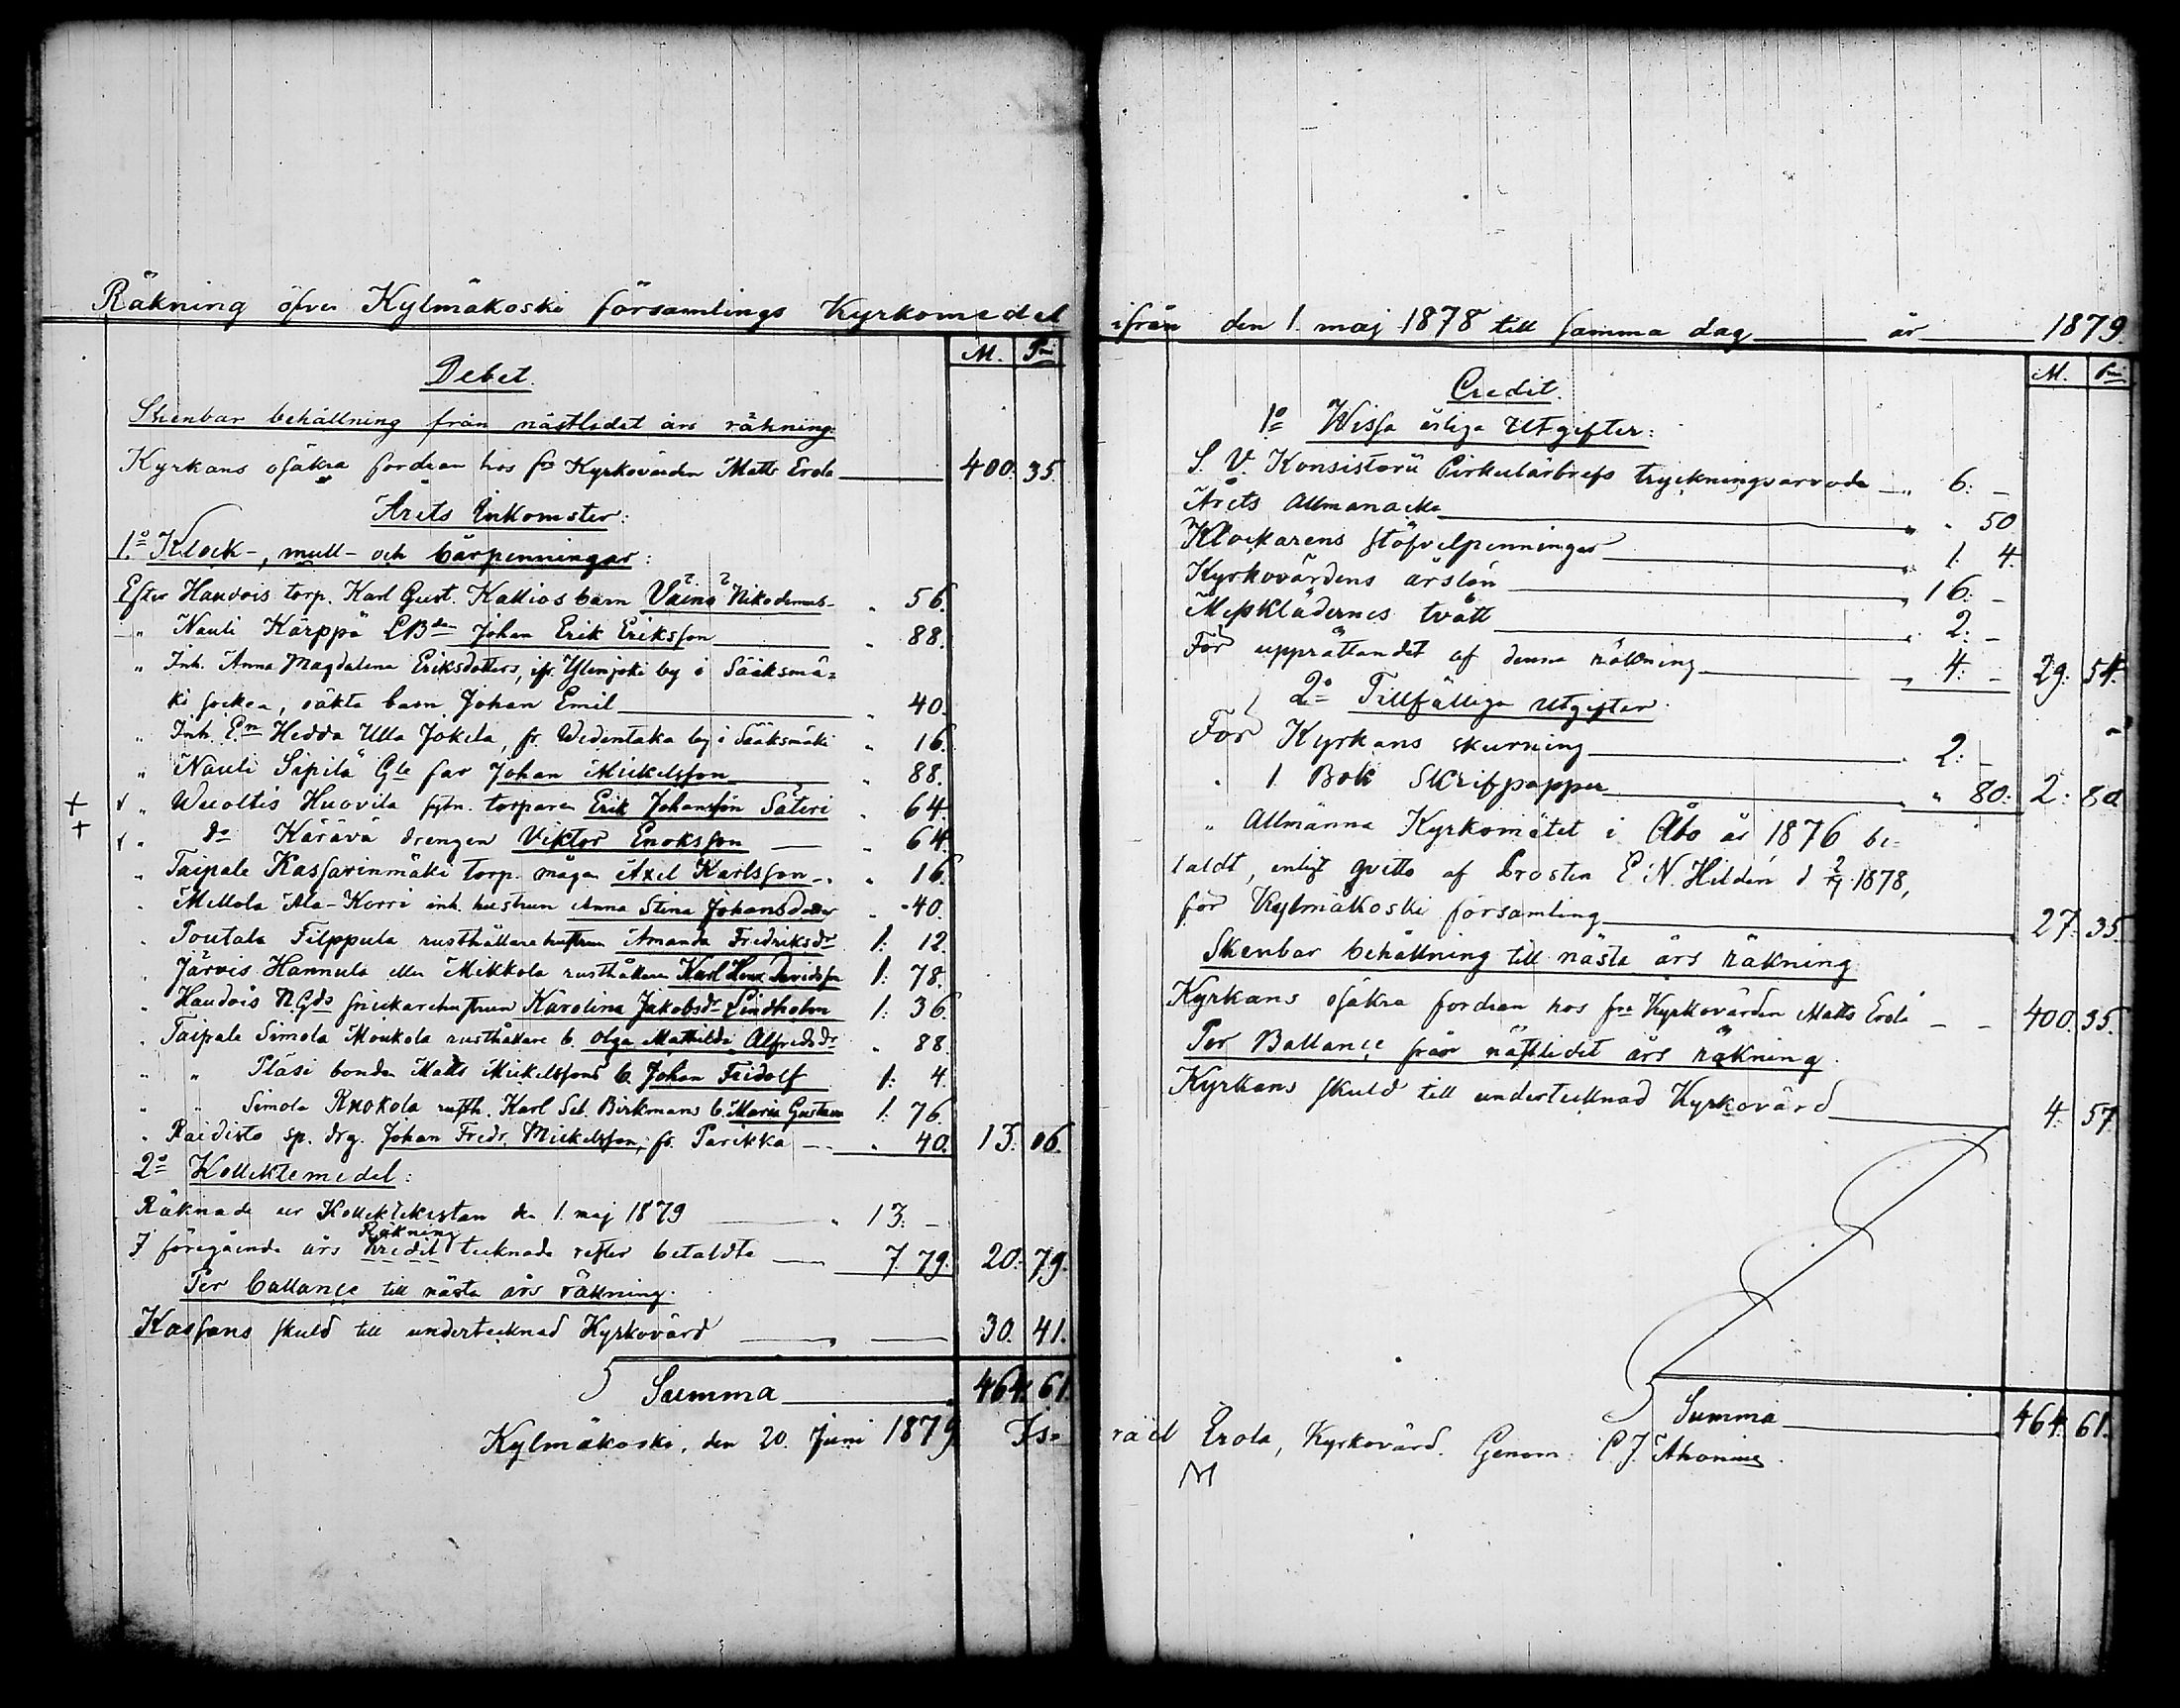 Räkning öfver Kylmäkoski församlings Kyrkomedel
M. Pni
Debet.
Skenbar behållning från nästledet års räkning:
Kyrkans osäkra fordran hos fre Kyrkovärden Matts Erola 400: 35.
Årets Inkomster:
1:o Klock-, mull- och bårpenningar:
Efter Haudois torp. Karl Gust. Kallios barn Väinö Nikodemus " 56.
" Nauli Kärppä LBden Johan Erik Eriksson " 88.
" Inh. Anna Magdalena Eriksdotters, ifr. Ylenjoki by i Sääksmä=
ki socken, oäkta barn Johan Emil " 40.
" Inh. En Hedda Ulla Jokela, fr. Wedentaka by i Sääksmäki " 16.
" Nauli Sipilä Gle far Johan Mickelsson " 88.
+ " Wuoltis Huovila fytn. torparen Erik Johansson Säteri " 64.
+ " do Kärävä drengen Viktor Enoksson " 64.
" Taipale Kassarinmäki torp. måga Axel Karlsson " 16.
" Mellola Ala-Korri inh. hustrun Anna Stina Johansdotter " 40.
" Poutala Filppula rusthållarehustrun Amanda Fredriksdr 1: 12.
" Järvis Hannula eller Mikkola rusthållaren Karl Henr. Davidsson 1: 78.
" Haudois NGds snickarehustrun Karolina Jakobsdr Lindholm 1: 36.
" Taipale Simola Moukola rusthållare b. Olga Mathilda Alfredsdr " 88.
" " Pläsi bonden Matts Mickelssons b. Johan Fridolf 1: 4.
" " Simola Ruokola rusth. Karl Seb. Birkmans b. Maria Gustava 1: 76.
" Raidisto sp. drg. Johan Fredr. Mickelsson, fr. Parikka " 40. 13: 06.
2:o Kollektemedel:
Räknade ur Kollektkistan den 1. maj 1879 " 13: -
Räkning
I föregående års kredit tecknade rester betaldte 7. 79. 20: 79.
Per ballance till nästa års räkning.
Kassans skuld till undertecknad Kyrkovärd 30. 41.
Summa 464. 61.
Kylmäkoski, den 20. Juni 1879 Is=
ifrån den 1. maj 1878 till samma dag år 1879.
M. Pni
Credit.
1:o Wissa årliga Utgifter:
S. V. Konsistorii Cirkulärbrefs tryckningsarvode " 6: -
Årets Allmanacka " " 50
Klockarens stöfvelpenningar " 1: 4.
Kyrkovärdens årslön " 16: -
Messklädernes tvätt " 2: -
För upprättandet af denna räkning " 4: - 29: 54.
2:o Tillfälliga utgifter.
För Kyrkans skurning " 2: -
" 1 Bok Skrifpapper " " 80: 2: 80
" Allmänna Kyrkomötet i Åbo år 1876 be=
taldt, enligt qvitto af Prosten E. N. Hildén d. 2/7 1878,
för Kylmäkoski församling 27: 35.
Skenbar behållning till nästa års räkning
Kyrkans osäkra fordran hos fre Kyrkovärden Matts Erola - - 400. 35.
Per Ballance från nästledet års räkning.
Kyrkans skuld till undertecknad Kyrkovärd 4: 57.
Summa 464. 61.
raël Erola, Kyrkovärd. Genom: C. J. Ahonius.